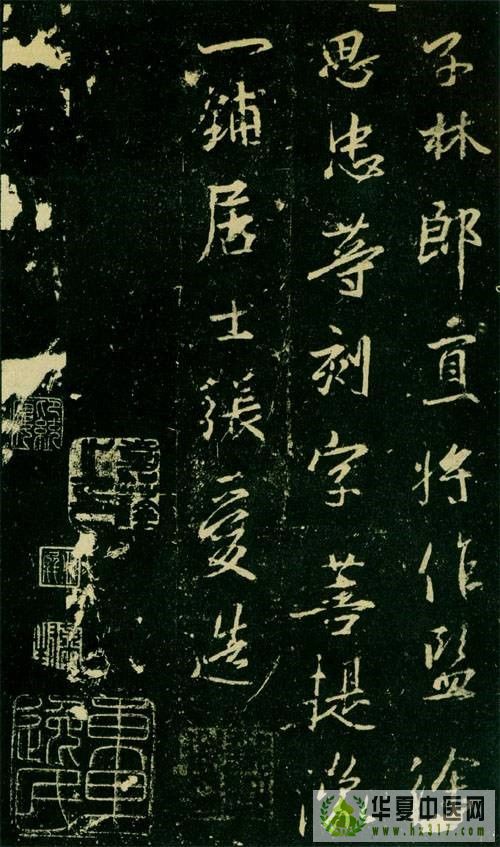 文林郎直將作監徐
思忠等刻字菩提像
一鋪居士張愛造
华夏中医网
www.hx317.com